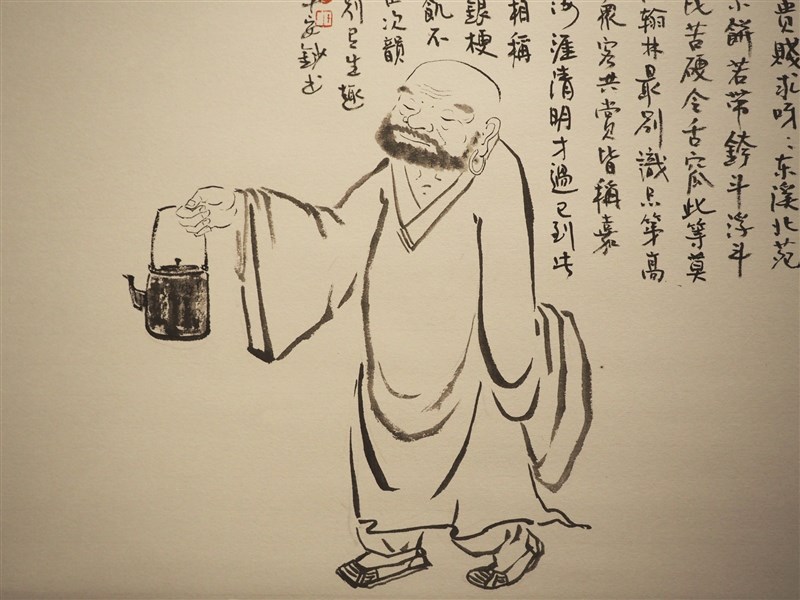 貴賤求呀:东溪北苑
小餅若带銙斗浮斗
比苦硬令舌窊此等莫
翰林最别識品第高
眾客共赏皆稱嘉
海涯清明才過已到此
相稱
銀梗
飢不
次韻
别有生趣
安鈔书